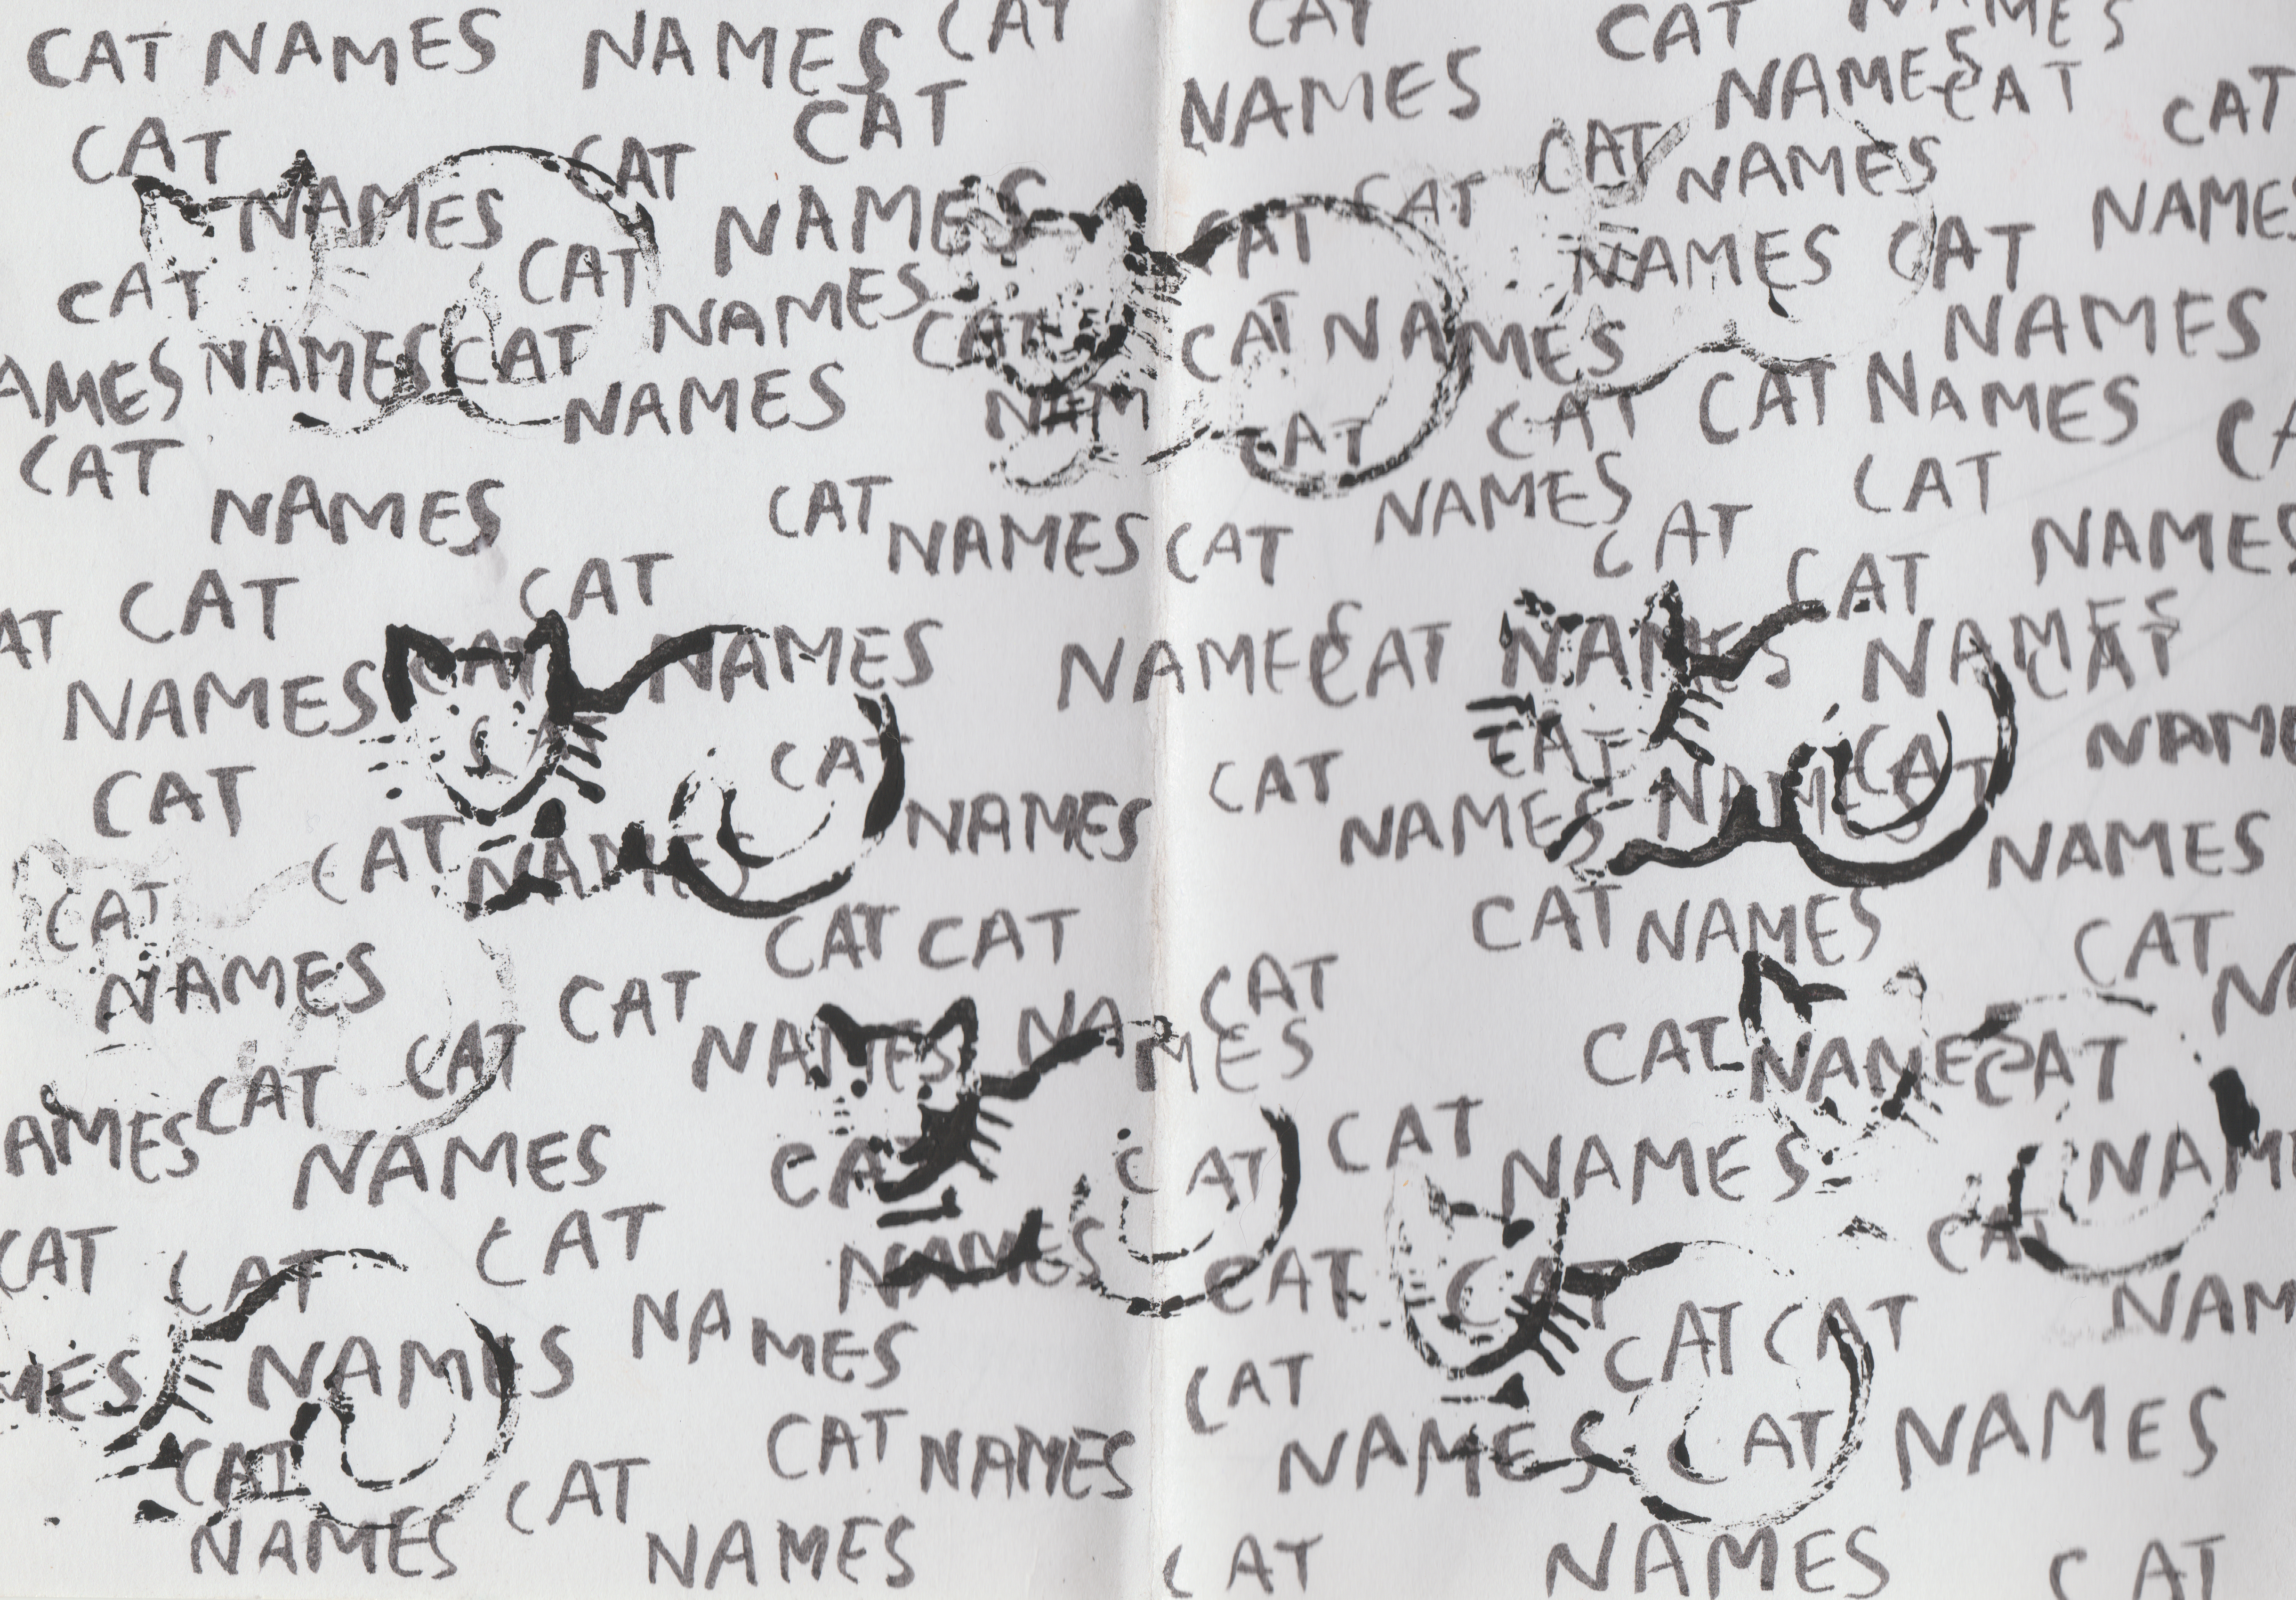 CAT NAMES
NAMES
CAT
CAT
CAT
NAMES
NAMES
NAMES
CAT
CAT
CAT
CAT
CAT
NAMES
NAMES
CAT
CAT
CAT
NAMES
NAMES
CAT
CAT
NAMES
NAMES
CAT
CAT
NAMES
NAMES
CAT
CAT NAMES
NAMES
AMES
NAMES
CAT
NAMES
CAT
NAM
CAT
CAT
CAT
NAMES
CA
CAT
NAMES
CAT
NAMES
NAMES
CAT
CAT
CAT
CAT
NAMES
CAT
CAT
AT
CAT
NAMES
NAMES
CAT
NAMES
NAMES
CAT
NAMES
CAT
CAT
CAT
CAT
CAT
NAME
CAT
NAMES
NAMES
NAMES
CAT
CAT
NAMES
NAMES
CAT
CAT
CAT
CAT
NAMES
CAT
NAMES
CAT
CAT
NAMES
NAMES
CAT
NAMES
CAT
AMES
CAT
CAT
NAMES
CAT
CAT
CAT
NAMES
NAM
CAT
CAT
CAT
NAMES
CAT
CAT
CAT
NAM
MES
NAMES
NAMES
CAT
CAT
CAT
CAT
CAT
NAMES
CAT
NAMES
CAT
NAMES
NAMES
NAMES
CAT
NAMES
CAT